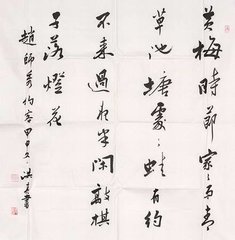 黄梅時節家々雨青
草池塘處々蛙有約
不來過夜半閑敲棋
子落燈花
趙師秀約客甲申冬書